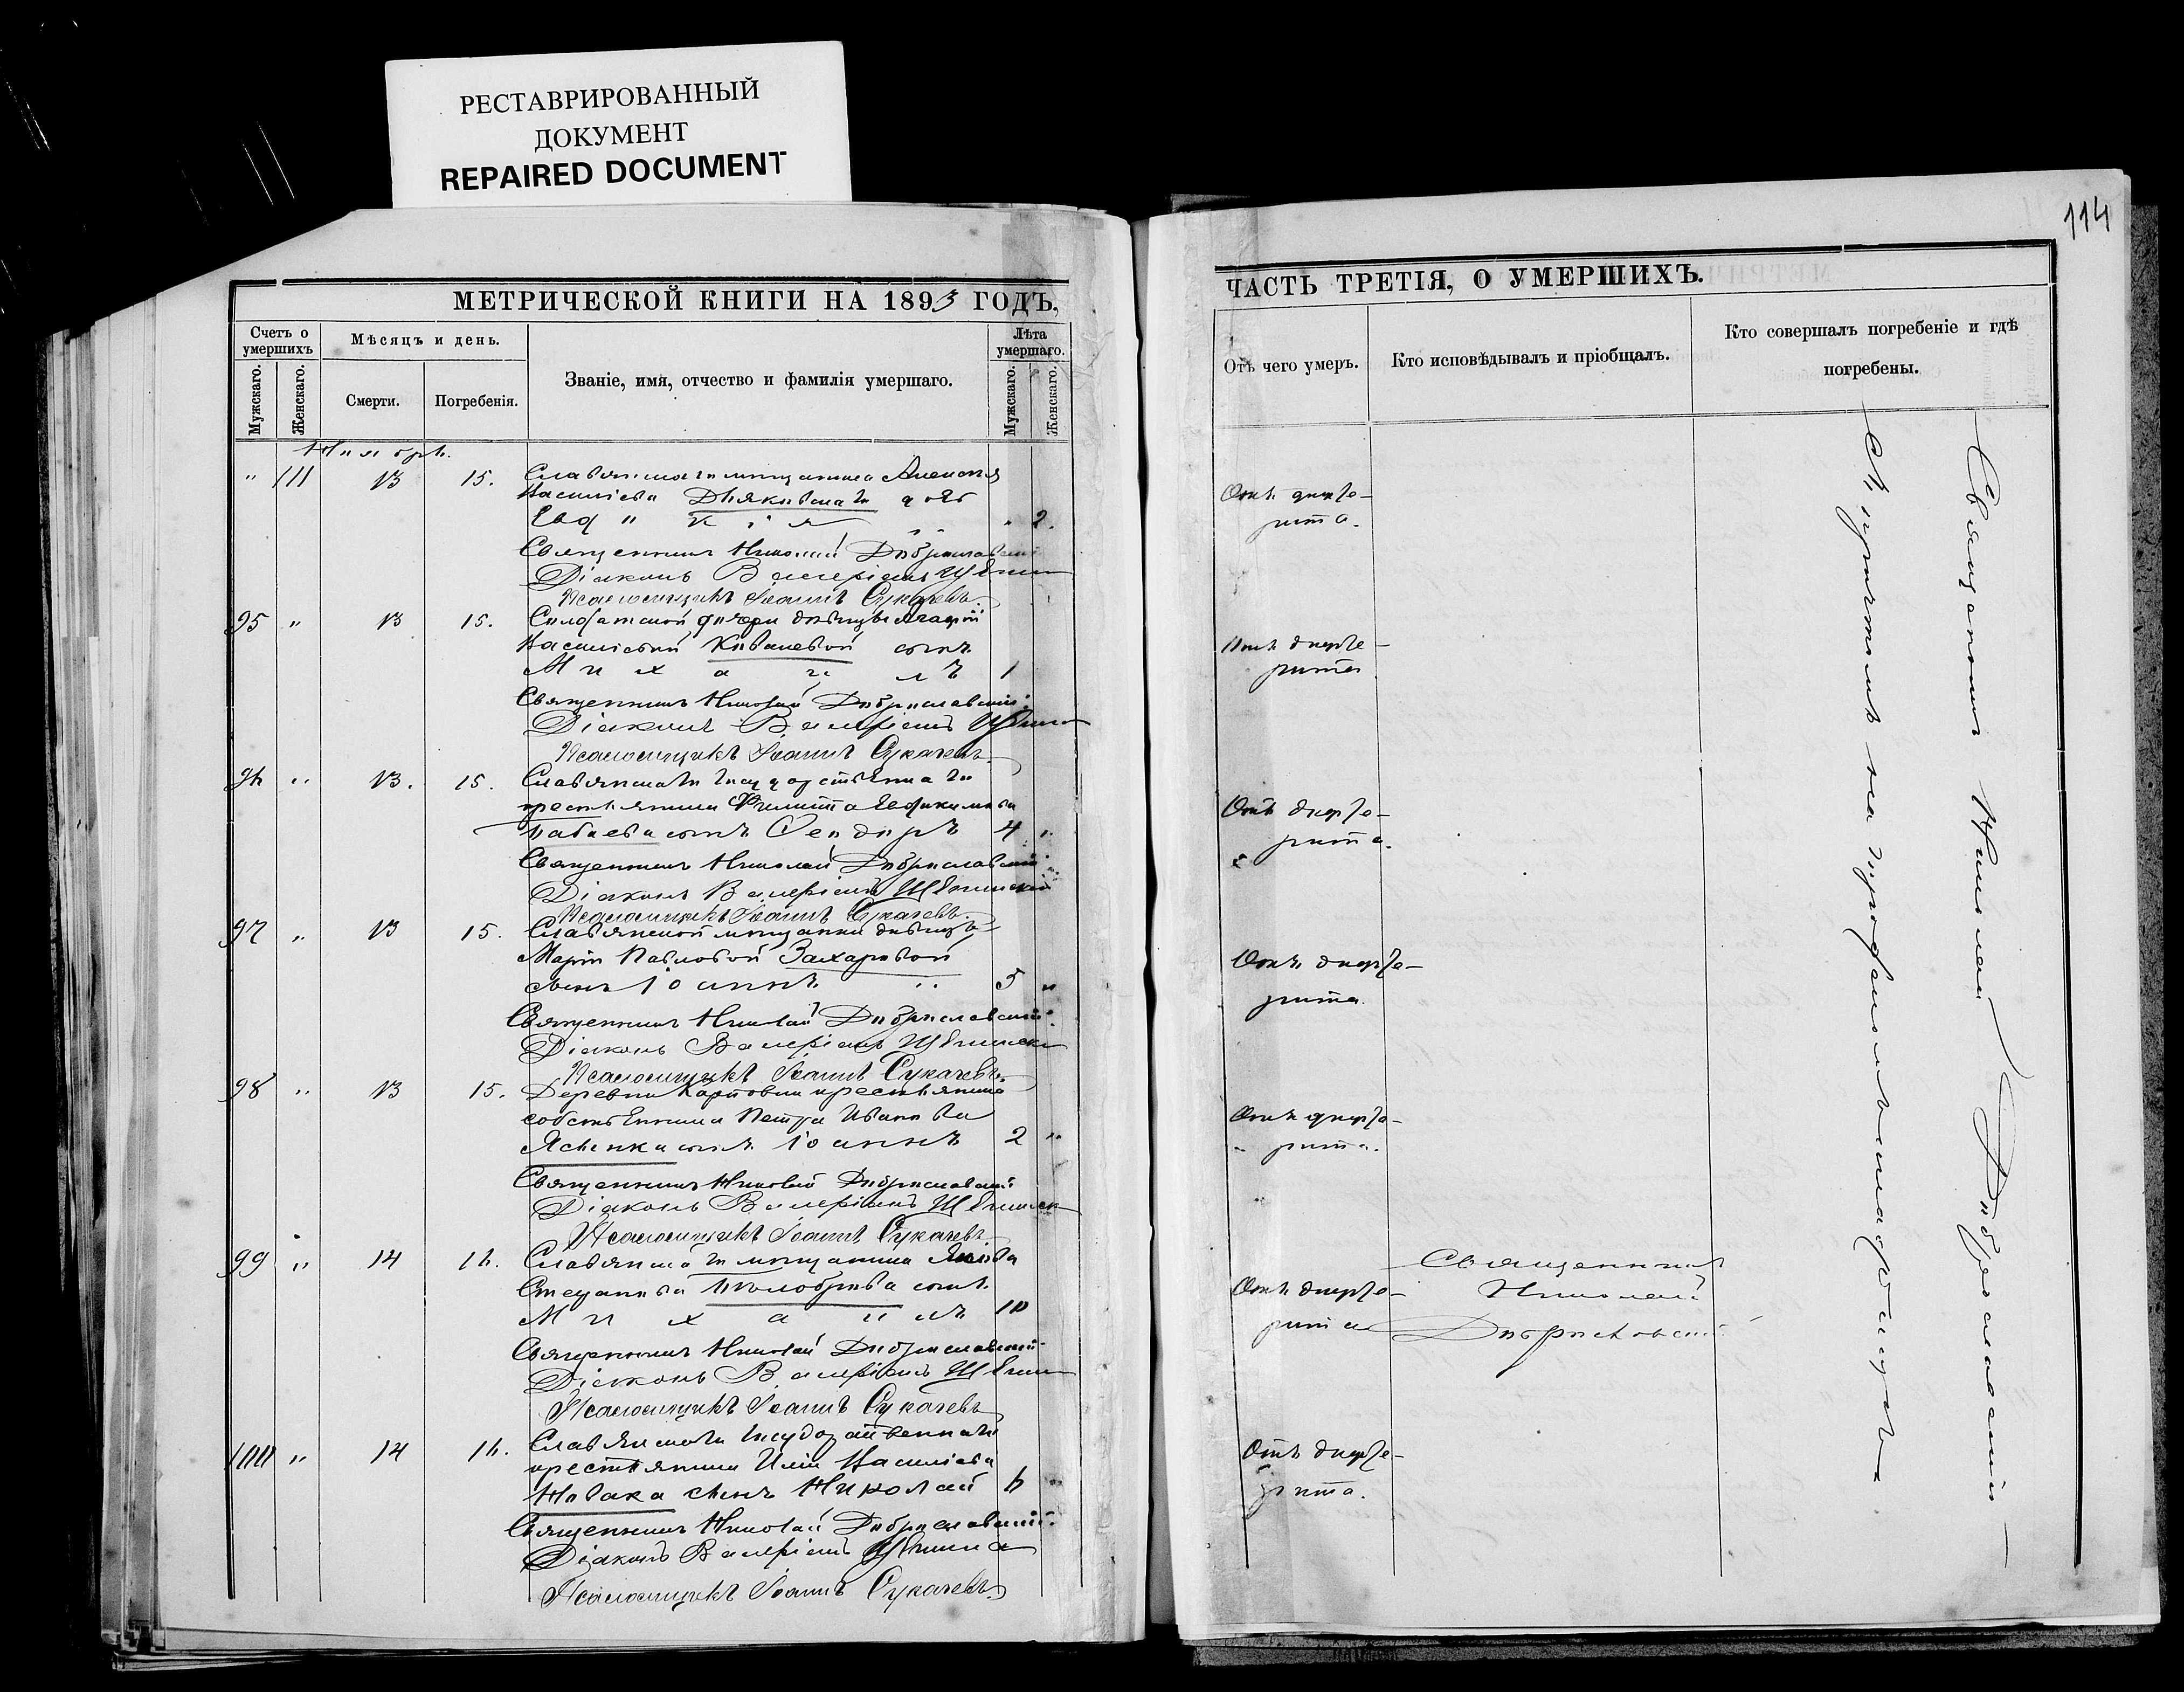 РЕСТАВРИРОВАННЫЙ
ДОКУМЕНТ
REPAIRED DOCUMENT
МЕТРИЧЕСКОЙ КНИГИ НА 1893 ГОДЪ,
Счетъ о умершихъ
Мужскаго.
Женскаго.
Мѣсяцъ и день.
Смерти.
Погребенія.
Званіе, имя, отчество и фамилія умершаго.
Лѣта умершаго.
Мужскаго.
Женскаго.
Ноябрь.
" 111 13 15. Славянскаго мѣщанина Алексѣя
Василіева Дьяковскаго дочь
2.
Священникъ Николай Доброславскій
Діаконъ Валеріанъ
Псаломщикъ Іоаннъ Сукачевъ.
95 " 13 15. дочери дѣвицы Агафіи
Василіевой Ковалевой сынъ
Михаилъ 1
Священникъ Николай Доброславскій
Діаконъ Валеріанъ
Псаломщикъ Іоаннъ Сукачевъ
96 " 13. 15. Славянскаго государственнаго
крестьянина Филиппа
сынъ Ѳеодоръ 4 "
Священникъ Николай Доброславскій
Діаконъ Валеріанъ
Псаломщикъ Іоаннъ Сукачевъ.
97 " 13 15. Славянской мѣщанки дѣвицы
Маріи Павловой Захаровой
сынъ Іоаннъ 5 "
Священникъ Николай Доброславскій
Діаконъ Валеріанъ
Псаломщикъ Іоаннъ Сукачевъ.
98 " 13 15. Деревни крестьянина
собственника Петра Иванова
Ясенка сынъ Іоаннъ 2 "
Священникъ Николай Доброславскій
Діаконъ Валеріанъ
Псаломщикъ Іоаннъ Сукачевъ
99 " 14 16. Славянскаго мѣщанина Якова
Стефанова сынъ
Михаилъ 10
Священникъ Николай Доброславскій
Діаконъ Валеріанъ
Псаломщикъ Іоаннъ Сукачевъ
100 " 14 16. Славянскаго государственнаго
крестьянина Иліи Василіева
Новака сынъ Николай 6 "
Священникъ Николай Доброславскій
Діаконъ Валеріанъ
Псаломщикъ Іоаннъ Сукачевъ
114
ЧАСТЬ ТРЕТІЯ, О УМЕРШИХЪ.
Отъ чего умеръ.
Кто исповѣдывалъ и пріобщалъ.
Кто совершалъ погребеніе и гдѣ
погребены.
Отъ дифте-
рита.
Отъ дифте-
рита
Отъ дифте-
рита.
Отъ дифте-
рита.
Отъ дифте-
рита.
Отъ дифте-
рита
Священникъ
Николай
Доброславскій
Отъ дифте-
рита.
Священникъ Николай Доброславскій
съ причтомъ на приходскомъ кладбищѣ